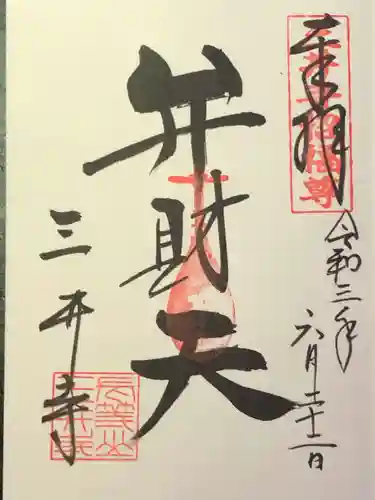 奉拝
令和三年
六月二十二日
弁財天
三井寺